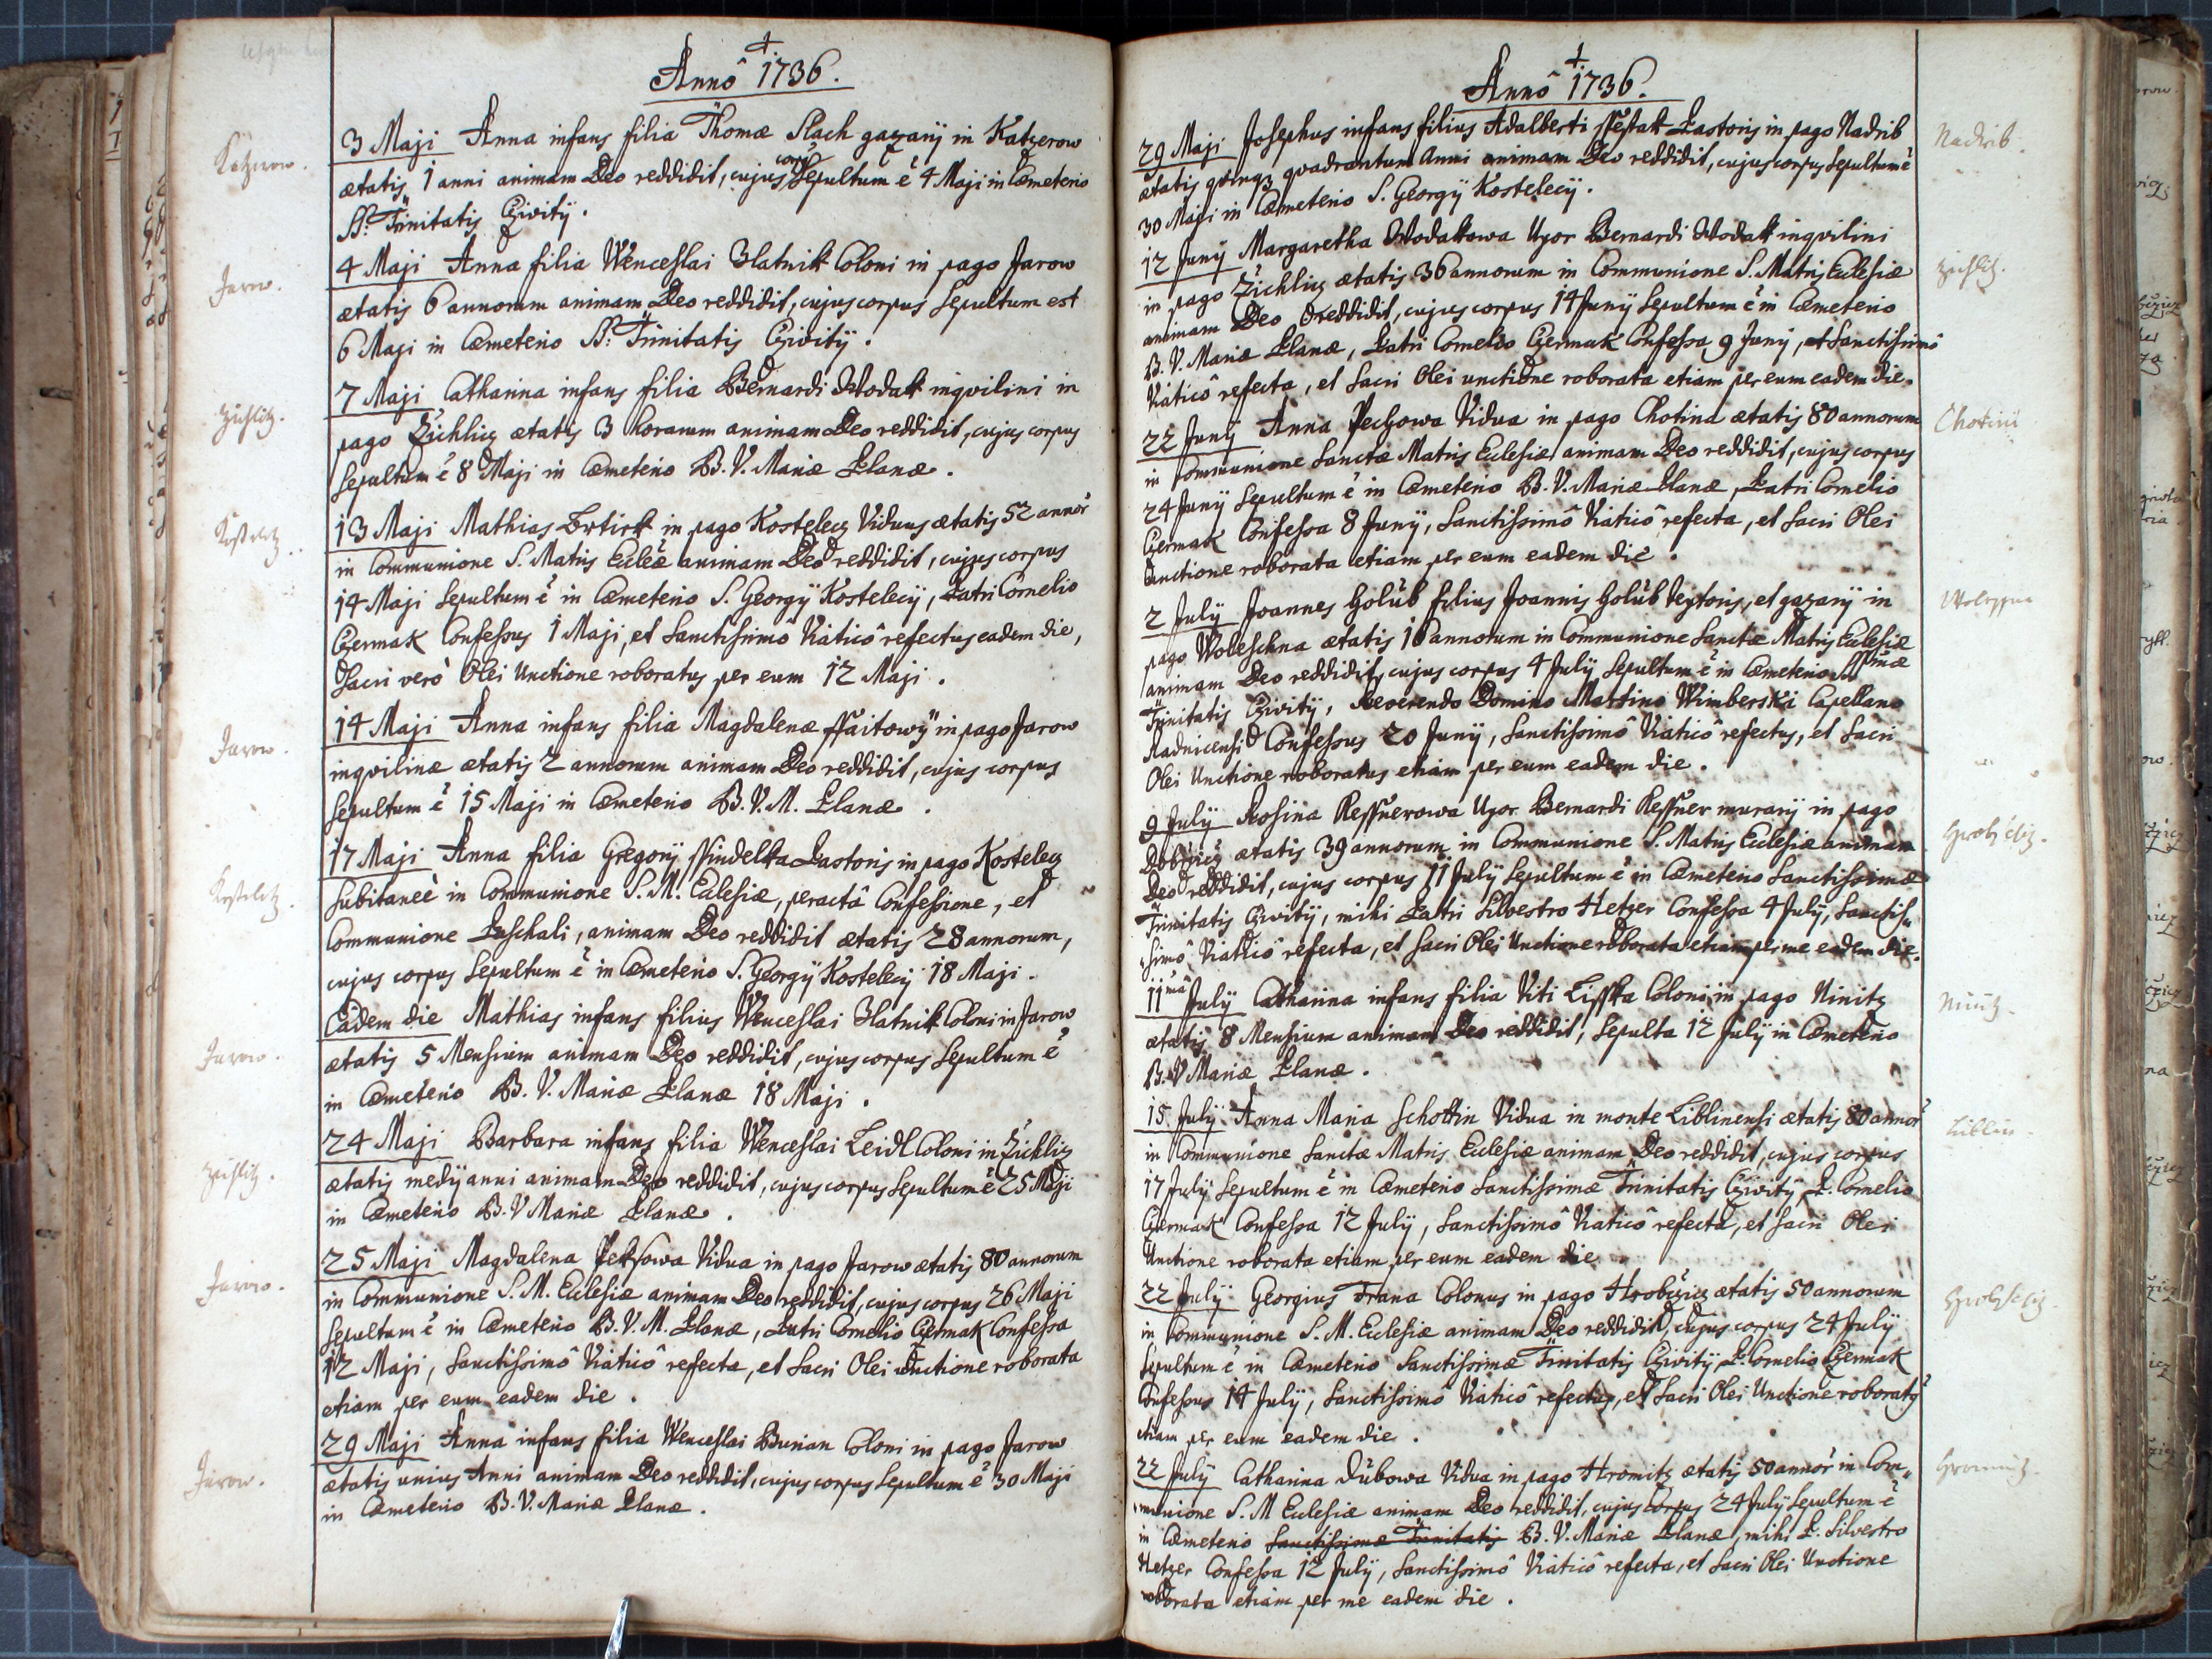 Annô 1736.
Katzerow.
3 Maji Anna infans filia Thomæ Slach gazarij in Katzerow
ætatis 1 anni animam Deo reddidit, cujus corpo Sepultum ē 4 Maji in Cæmeterio
SS. Trinitatis Czivitÿ.
Jarow.
4 Maji Anna filia Wenceslai Zlatnik Coloni in pago Jarow
ætatis 6 annorum animam Deo reddidit, cujus corpus Sepultum est
6 Maji in Cæmeterio SS. Trinitatis Czivitÿ.
Zichlitz.
7 Maji Catharina infans filia Bernardi Wodak inqvilini in
pago Zichlicz ætatis 3 horarum animam Deo reddidit, cujus corpus
Sepultum ē 8 Maji in Cæmeterio B. V. Mariæ Planæ.
Kosteletz.
13 Maji Mathias Brtick in pago Kostelecz Viduus ætatis 52 annor
in Communione S. Matris Eccleæ animam Deo reddidit, cujus corpus
14 Maji Sepultum ē in Cæmeterio S. Georgÿ Kostelecÿ, Patri Cornelio
Czermak Confessus 1 Maji, et Sanctissimô Viaticô refectus eadem die,
Sacri verò Olei Unctione roboratus per eum 12 Maji.
Jarow.
14 Maji Anna infans filia Magdalenæ ssaitowÿ in pago Jarow
inqvilinæ ætatis 2 annorum animam Deo reddidit, cujus corpus
Sepultum ē 15 Maji in Cæmeterio B. V. M. Planæ.
Kosteletz.
17 Maji Anna filia Gregorÿ ssindelka Pastoris in pago Kostelecz
Subitaneè in Communione S. M. Eclesiæ, peractâ Confessione, et
Communione Paschali, animam Deo reddidit ætatis 28 annorum,
cujus corpus Sepultum ē in Cæmeterio S. Georgÿ Kostelecÿ 18 Maji.
Jarow.
Eâdem die Mathias infans filius Wenceslai Zlatnik Coloni in Jarow
ætatis 5 Mensium animam Deo reddidit, cujus corpus Sepultum ē
in Cæmeterio B. V. Mariæ Planæ 18 Maji.
Zichlitz.
24 Maji Barbara infans filia Wenceslai Leidl Coloni in Zichlicz
ætatis medÿ anni animam Deo reddidit, cujus corpus Sepultum ē 25 Maji
in Cæmeterio B. V Mariæ Planæ.
Jarow.
25 Maji Magdalena Peksowa Vidua in pago Jarow ætatis 80 annorum
in Communione S. M. Eclesiæ animam Deo reddidit, cujus corpus 26 Maji
Sepultum ē in Cæmeterio B. V. M. Planæ, Patri Cornelio Czermak Confessa
12 Maji, Sanctissimô Viaticô refecta, et Sacri Olei Unctione roborata
etiam per eum eadem die.
Jarow.
29 Maji Anna infans filia Wenceslai Burian Coloni in pago Jarow
ætatis unius Anni animam Deo reddidit, cujus corpus Sepultum ē 30 Maji
in Cæmeterio B. V. Mariæ Planæ.
Annô 1736.
Nadrib.
29 Maji Josephus infans filius Adalberti Pastoris in pago Nadrib
ætatis qvinqz qvadrantum Anni animam Deo reddidit, cujus corpus Sepultum ē
30 Maji in Cæmeterio S. Georgÿ Kostelecÿ.
Zichlitz.
12 Junÿ Margaretha Wodakowa Uxor Bernardi Wodak inqvilini
in pago Zichlicz ætatis 36 annorum in Communione S. Matris Eclesiæ
animam Deo reddidit, cujus corpus 14 Junÿ Sepultum ē in Cæmeterio
B. V. Mariæ Planæ, Patri Cornelio Czermak Confessa 9 Junÿ, et Sanctissimô
Viaticô refecta, et Sacri Olei unctione roborata etiam per eum eadem die.
Chotini
22 Junÿ Anna Peczowa Vidua in pago Chotina ætatis 80 annorum
in Communione Sanctæ Matris Eclesiæ animam Deo reddidit, cujus corpus
24 Junÿ Sepultum ē in Cæmeterio B. V. Mariæ Planæ, Patri Cornelio
Czermak Confessa 8 Junÿ, Sanctissimô Viaticô refecta, et Sacri Olei
Unctione roborata etiam per eum eadem die.
2 Julÿ Joannes Holub filius Joannis Holub textoris, et gazarÿ in
pago Woleschna ætatis 16 annorum in Communione Sanctæ Matris Eclesiæ
animam Deo reddidit, cujus corpus 4 Julÿ Sepultum ē in Cæmeterio SSmæ
Trinitatis Czivitÿ, Reverendo Domino Martino Wimberski Capellano
Radnicensi Confessus 20 Junÿ, Sanctissimô Viaticô refectus, et Sacri
Olei Unctione roboratus etiam per eum eadem die.
9 Julÿ Rosina Kessnerowa Uxor Bernardi Kessner murarÿ in pago
ætatis 39 annorum in Communione S. Matris Eclesiæ animam
Deo reddidit, cujus corpus 11 Julÿ Sepultum ē in Cæmeterio Sanctissimæ
Trinitatis Czivitÿ, mihi Patri Silvestro Hetzer Confessa 4 Julÿ, Sanctis„
simô Viaticô refecta, et Sacri Olei Unctione roborata etiam per me eadem die.
Ninitz.
11 Julÿ Catharina infans filia Viti Lisska Coloni in pago Ninitz
ætatis 8 Mensium animam Deo reddidit, Sepulta 12 Julÿ in Cæmeterio
B. V Mariæ Planæ.
Liblin.
15 Julÿ Anna Maria Schottin Vidua in monte Liblinensi ætatis 80 annor
in Communione Sanctæ Matris Eclesiæ animam Deo reddidit, cujus corpus
17 Julÿ Sepultum ē in Cæmeterio Sanctissimæ Trinitatis Czivitÿ P. Cornelio
Czermak Confessa 12 Julÿ, Sanctissimô Viaticô refecta, et Sacri Olei
Unctione roborata etiam per eum eadem die
22 Julÿ Georgius Trana Colonus in pago Hrobczicz ætatis 50 annorum
in Communione S. M. Eclesiæ animam Deo reddidit, cujus corpus 24 Julÿ
Sepultum ē in Cæmeterio Sanctissimæ Trinitatis Czivitÿ P. Cornelio Czermak
Confessus 14 Julÿ, Sanctissimô Viaticô refectus, et Sacri Olei Unctione roboratus
etiam per eum eadem die.
Hromitz.
22 Julÿ Catharina Dubowa Vidua in pago Hromitz ætatis 50 annor in Com„
munione S. M Eclesiæ animam Deo reddidit, cujus Corpus 24 Julÿ Sepultum ē
in Cæmeterio Sanctissimæ Trinitatis B. V. Mariæ Planæ, mihi P. Silvestro
Hetzer Confessa 12 Julÿ, Sanctissimô Viaticô refecta, et Sacri Olei Unctione
roborata etiam per me eadem die.